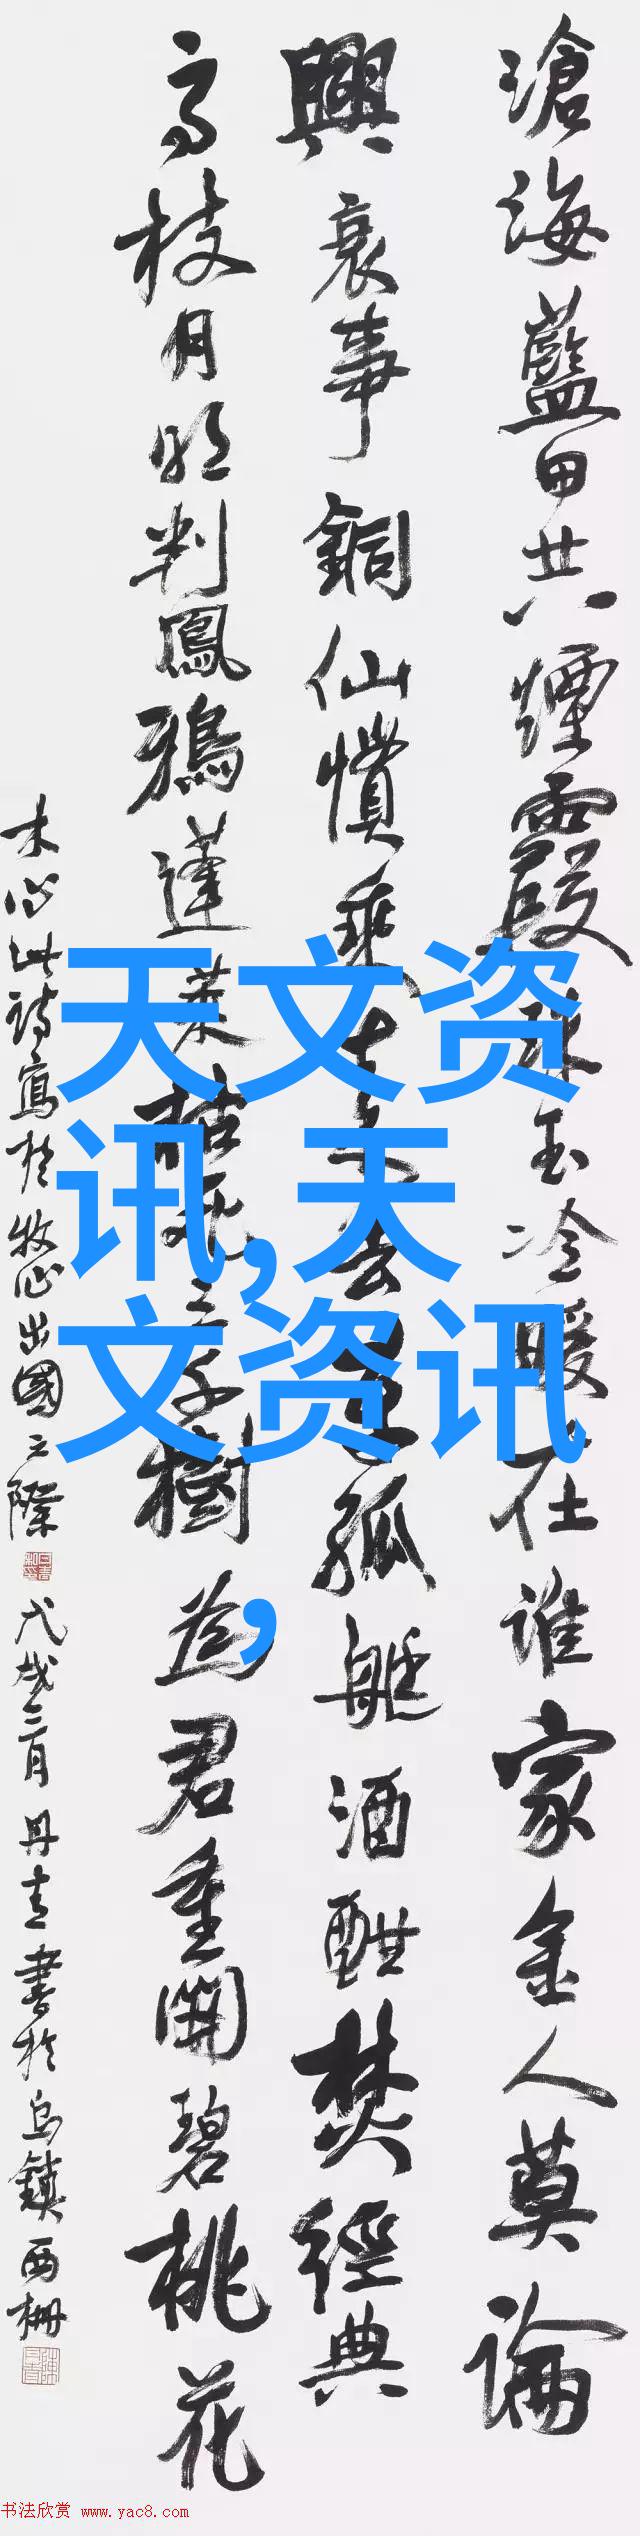 滄海藍田共煙霞珠玉冷暖在誰家金人莫論
興衰事銅仙慣乘來去車孤艇酒酣焚經典
高枝月明判鳳鴉蓬萊枯死三千樹為君重開碧桃花
木心此詩寫於牧心出國之際 戊戌三月丹青書於烏鎮西柵
天文资
讯,天
文资讯
,
书法欣赏 www.yac8.com